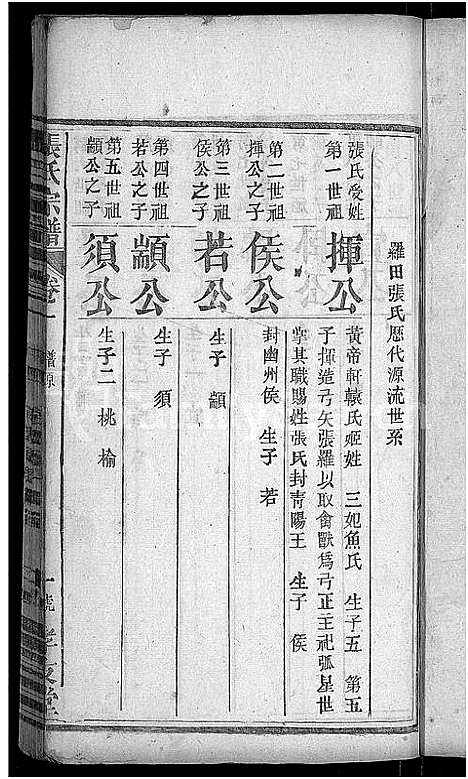 羅田張氏歷代源流世系
張氏受姓
第一世祖
揮公
黃帝軒轅氏姬姓 三妃魚氏 生子五 第五
子揮造弓矢張羅以取禽獸為弓正主祀弧星世
掌其職賜姓張氏封青陽王 生子 侯
第二世祖
揮公之子
侯公
封幽州侯 生子 若
第三世祖
侯公之子
若公
生子 顓
第四世祖
若公之子
顓公
生子 須
第五世祖
顓公之子
須公
生子二 桃 榆
張氏宗譜
卷一
譜源
一號